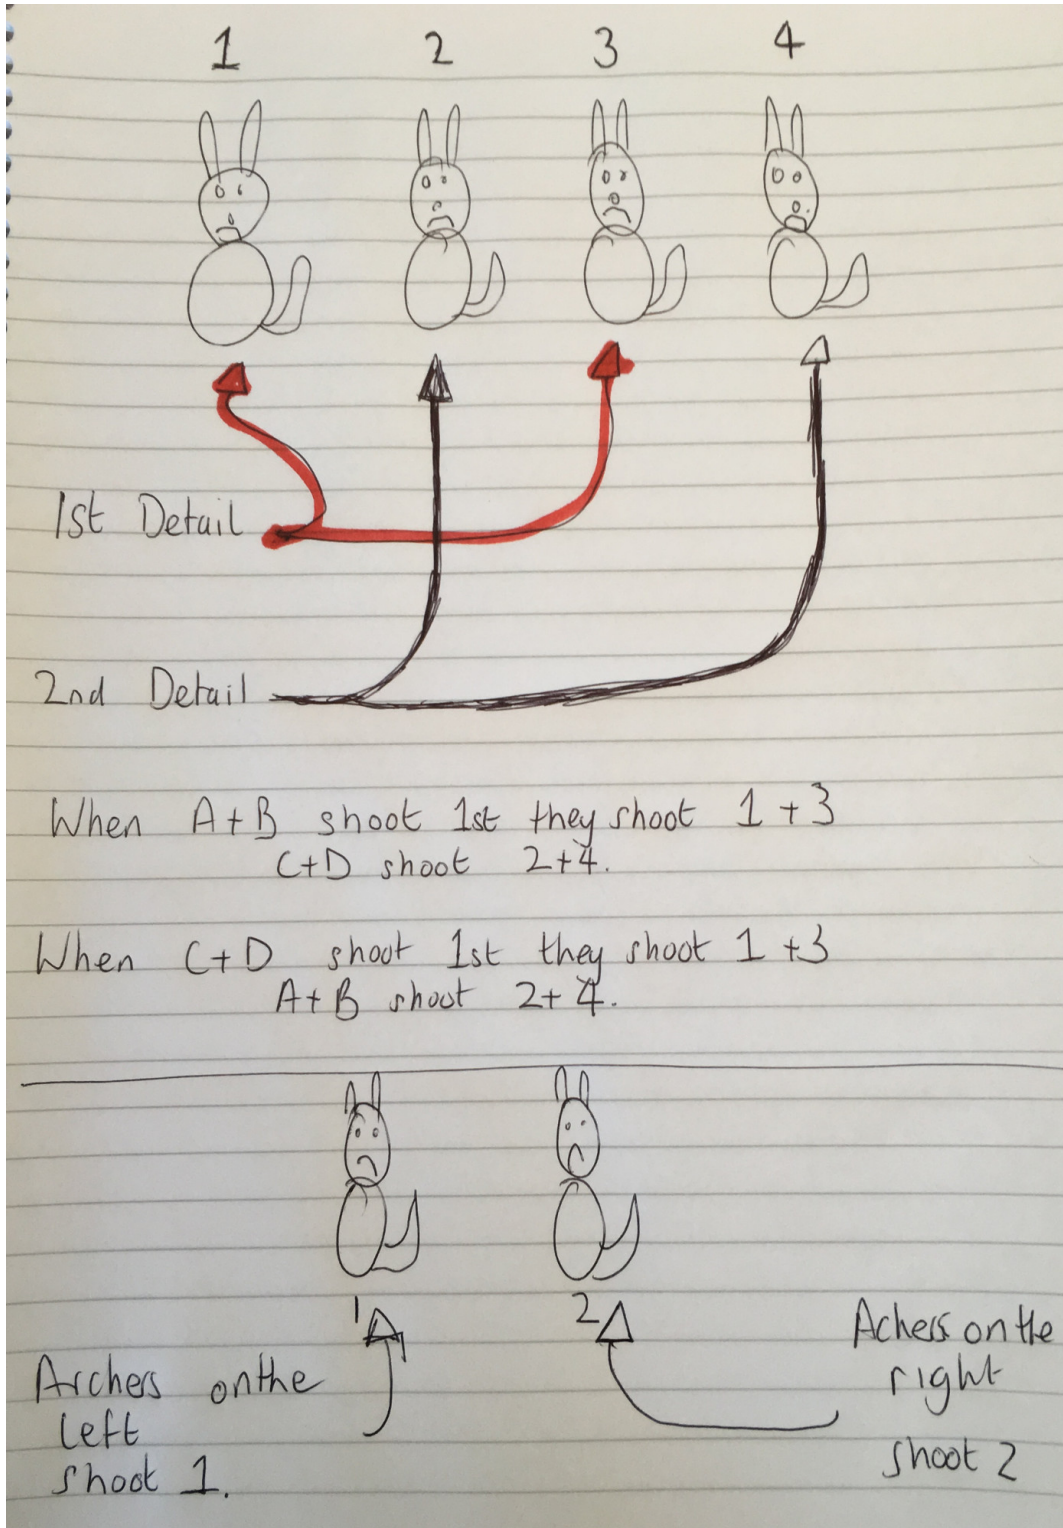 1 2 3 4
1st Detail
2nd Detail
When A+B shoot 1st they shoot 1 + 3
C+D shoot 2+4.
When C+D shoot 1st they shoot 1 +3
A+B shoot 2+4.
1 2
Archers on the
left
shoot 1.
Achers on the
right
shoot 2